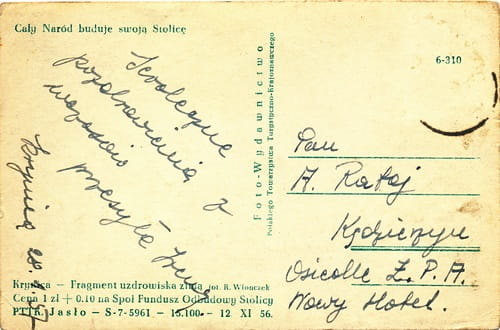 Cały Naród buduje swoją Stolicę
6-310
Serdeczne
pozdrowienia z
wczasów
przesyła
Krynica
Foto-Wydawnictwo
Polskiego Towarzystwa Turystyczno-Krajoznawczego
Pan
A. Rataj
Kędzierzyn
Osiedle Z.P.A.
Nowy Hotel.
Krynica — Fragment uzdrowiska zimą fot. R. Wionczek
Cena 1 zł + 0.10 na Społ Fundusz Odbudowy Stolicy
PTTK. Jasło - S-7-5961 - 15.100.- 12. XI 56.